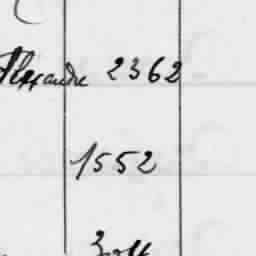 Alexandre 2362
1552